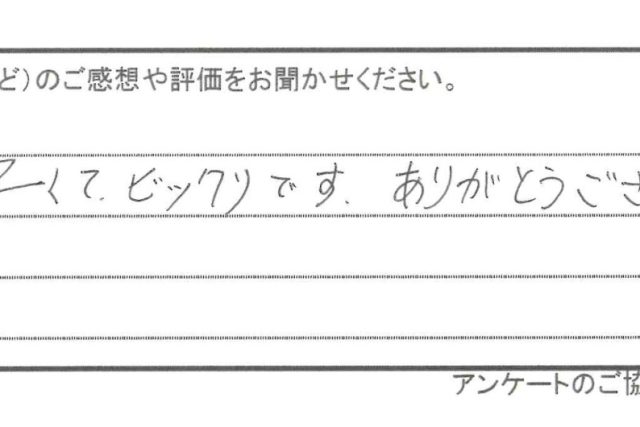 ど）のご感想や評価をお聞かせください。
くて、ビックリです。ありがとうござ
アンケートのご協